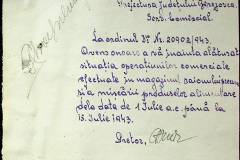 Prefectura Judeţului Bérezosca.
Serv. Comisarial
La ordinul Dv. Nr. 20902/943.
Avem onoare a vă înainta alăturat
situaţia operaţiunilor comerciale
efectuate în magazinul raionului precum
şi a mişcării produselor alimentare
dela data de 1 Iulie a.c. până la
15 Iulie 1943.
Pretor,